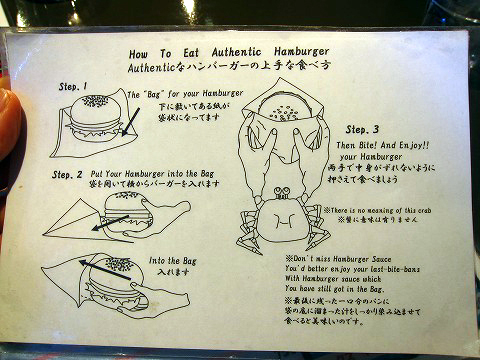 How To Eat Authentic Hamburger
Authenticなハンバーガーの上手な食べ方
Step. 1
The "Bag" for your Hamburger
下に敷いてある紙が
袋状になってます
Step. 2 Put Your Hamburger into the Bag
袋を開いて横からバーガーを入れます
Into the Bag
入れます
Step. 3
Then Bite! And Enjoy!!
your Hamburger
両手で中身がずれないように
押さえて食べましょう
※There is no meaning of this crab
※蟹に意味は有りません
※Don't miss Hamburger Sauce
You'd better enjoy your last-bite-bans
With Hamburger sauce which
You have still got in the Bag.
※最後に残った一口分のバンに
袋の底に溜まった汁をしっかり染み込ませて
食べると美味しいのです。